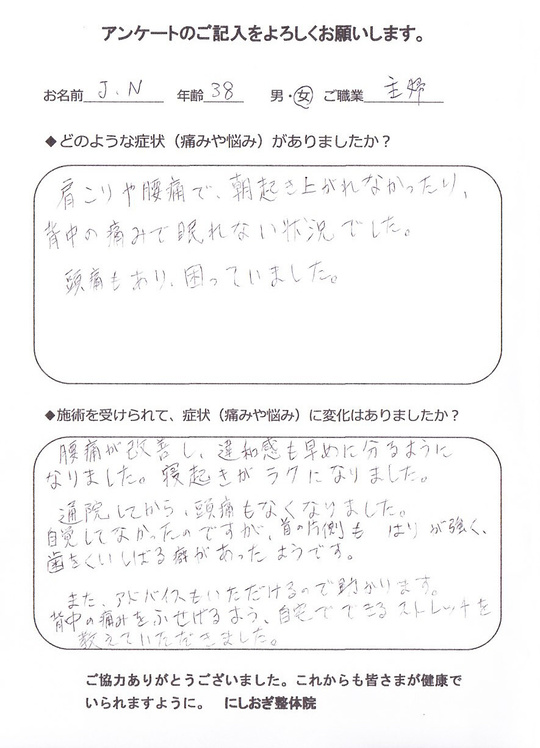 アンケートのご記入をよろしくお願いします。
お名前 J.N 年齢 38 男・女 ご職業 主婦
◆どのような症状（痛みや悩み）がありましたか？
肩こりや腰痛で、朝起き上がれなかったり、
背中の痛みで眠れない状況でした。
頭痛もあり、困っていました。
◆施術を受けられて、症状（痛みや悩み）に変化はありましたか？
腰痛が改善し、違和感も早めに分るように
なりました。寝起きがラクになりました。
通院してから、頭痛もなくなりました。
自覚してなかったのですが、首の片側も はりが強く、
歯をくいしばる癖があったようです。
また、アドバイスもいただけるので助かります。
背中の痛みをふせげるよう、自宅でできるストレッチを
教えていただきました。
ご協力ありがとうございました。これからも皆さまが健康で
いられますように。 にしおぎ整体院